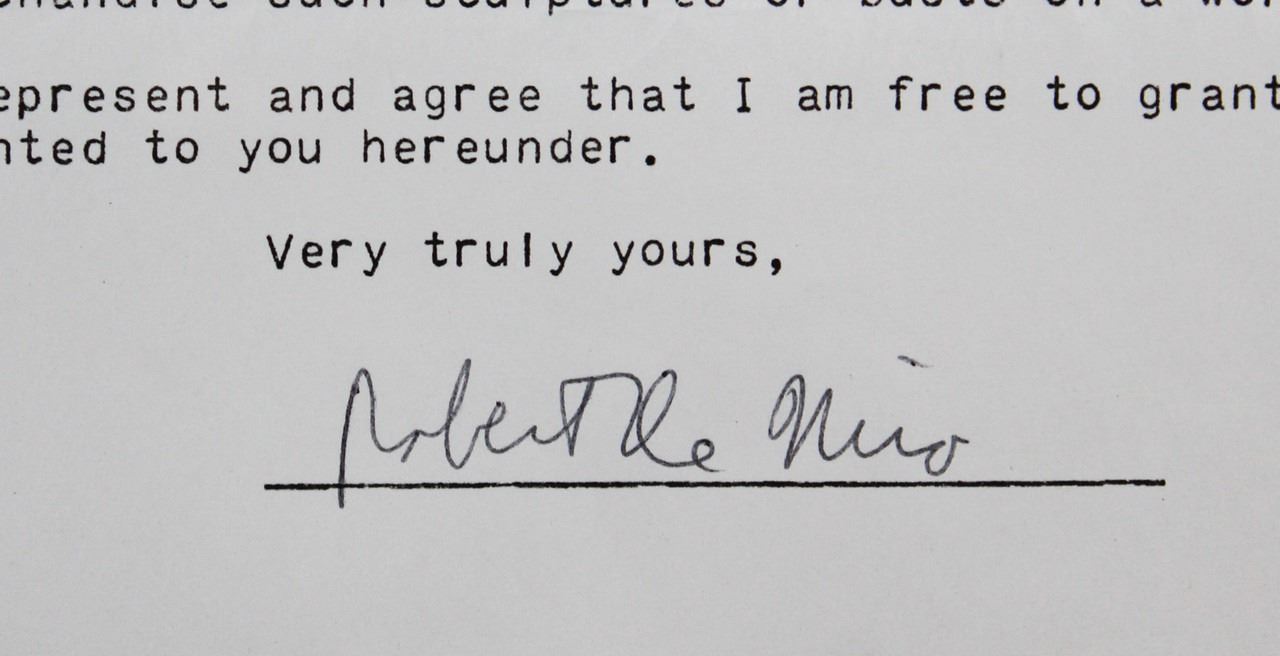 such sculptures or busts on a
epresent and agree that I am free to grant
nted to you hereunder.
Very truly yours,
Robert De Niro